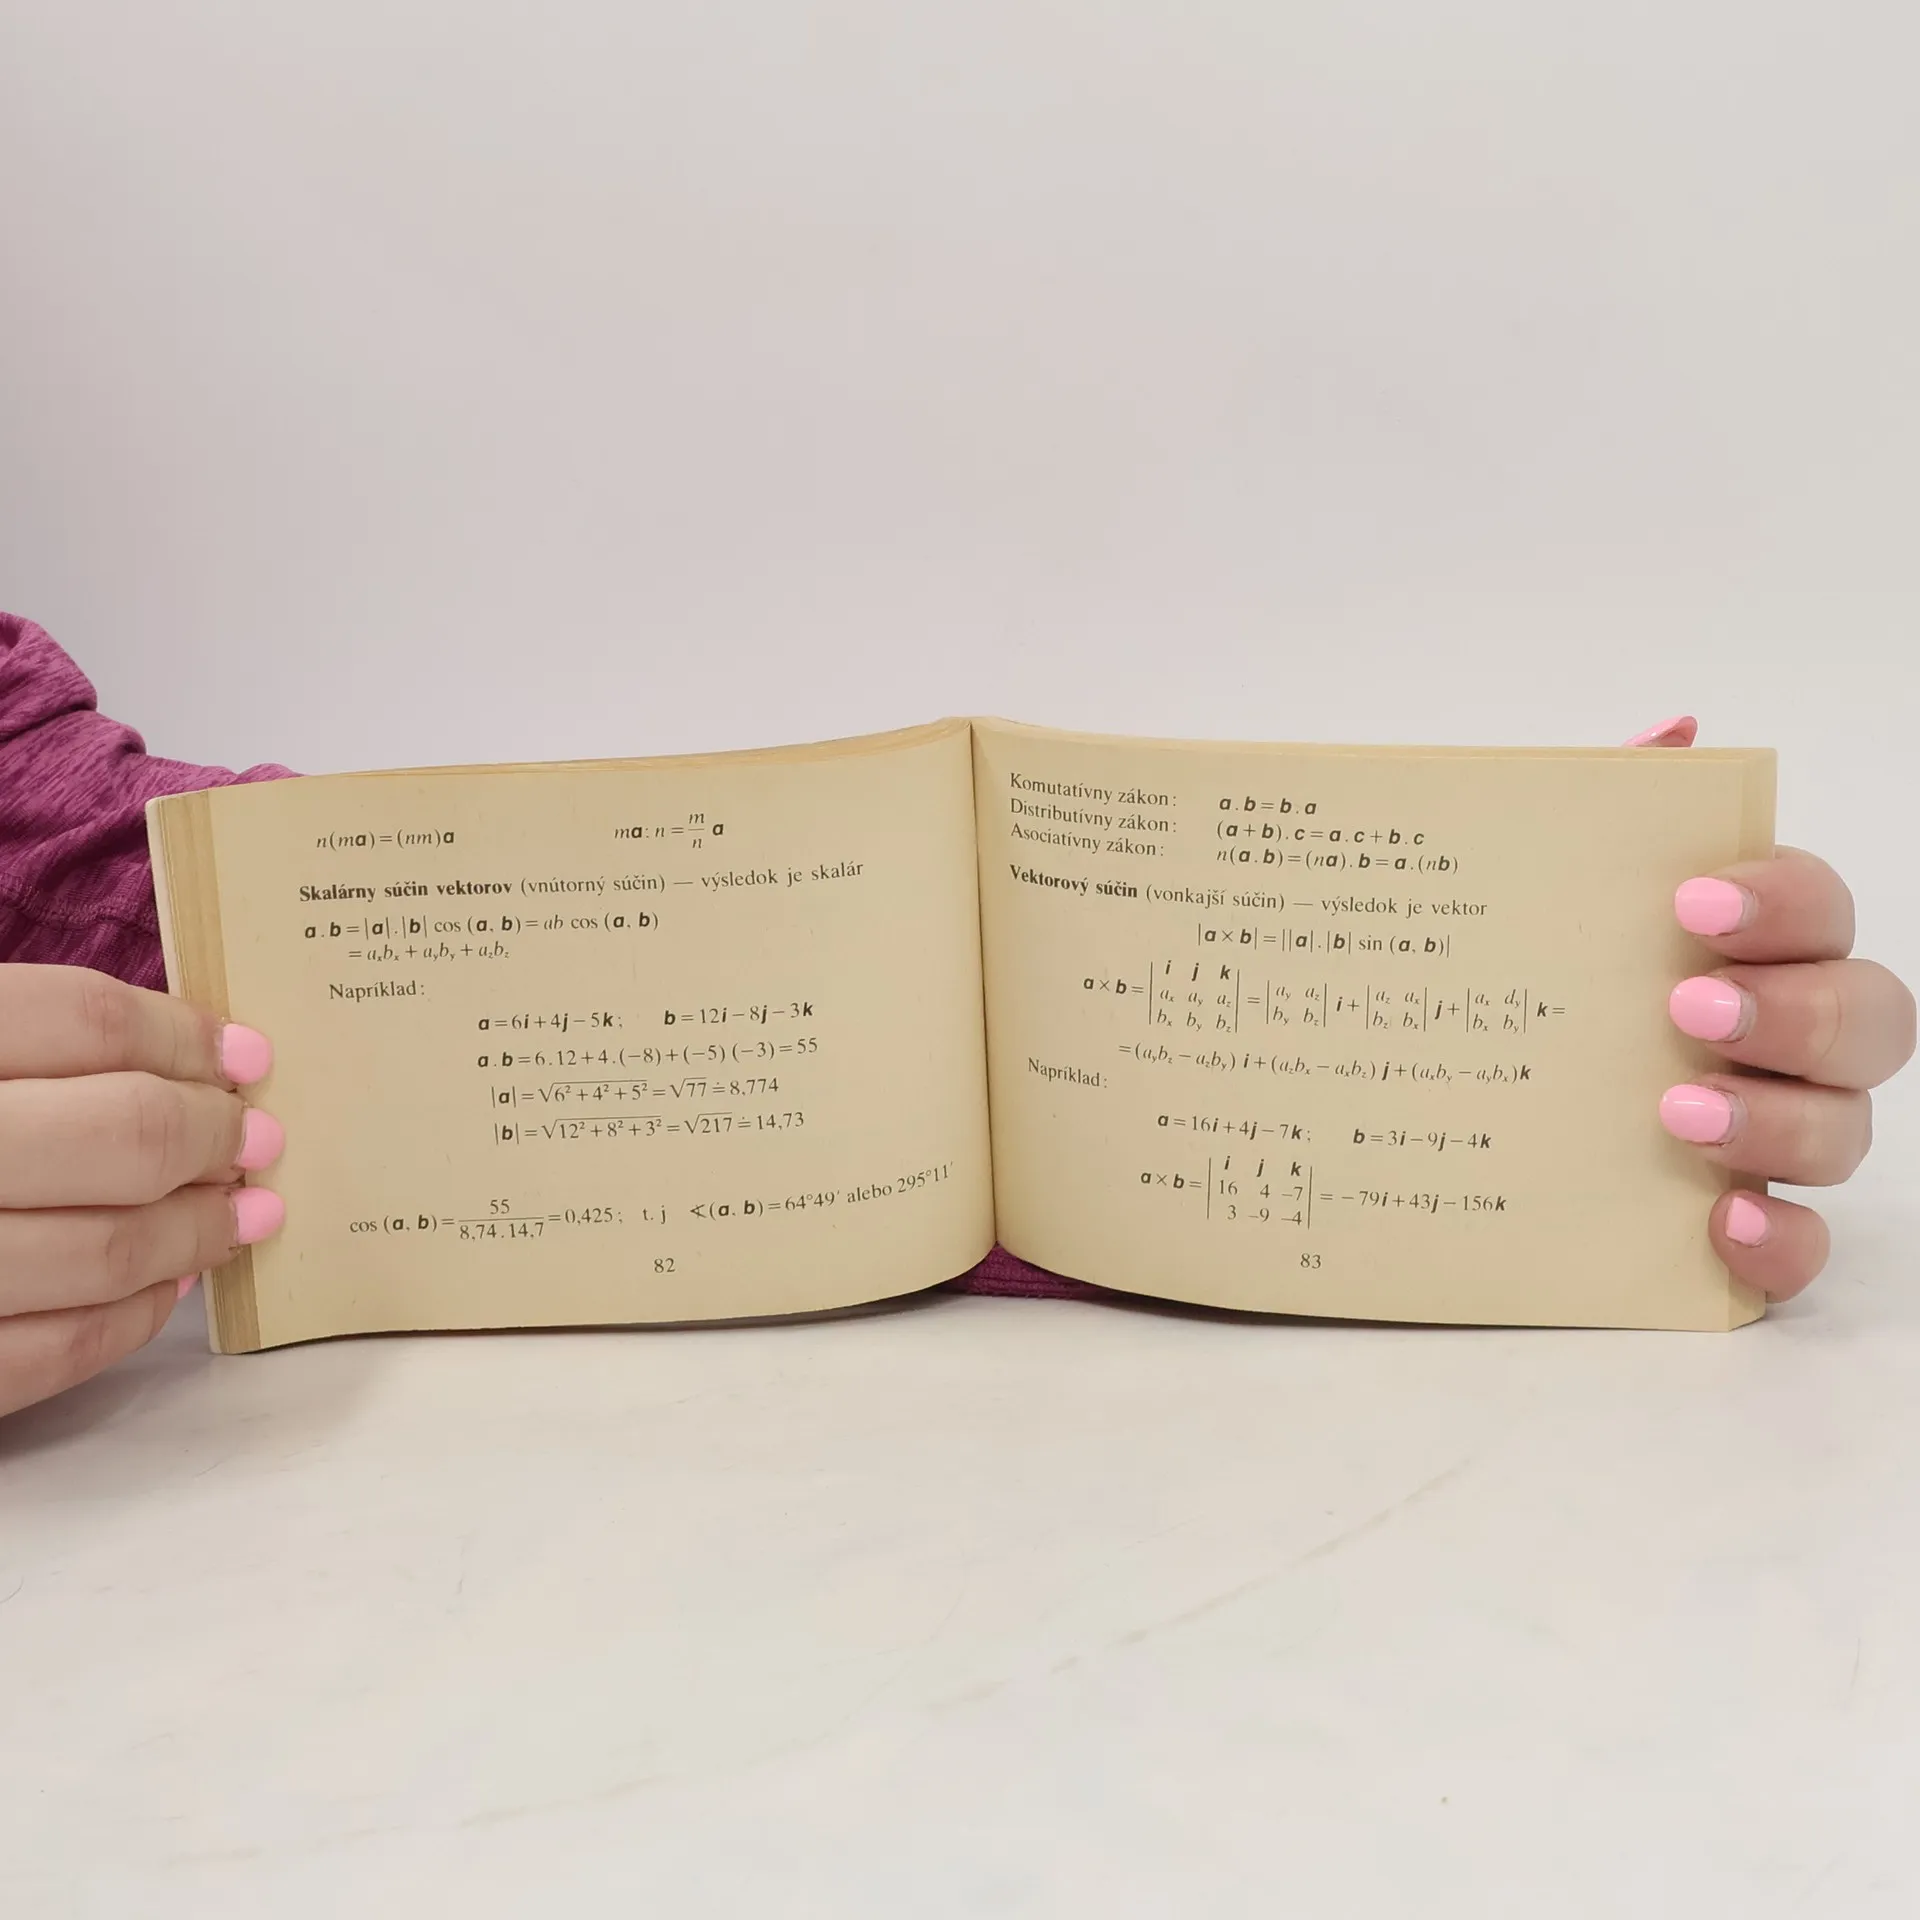 n(ma)=(nm)a ma:n=m/n a
Skalárny súčin vektorov (vnútorný súčin) — výsledok je skalár
a.b=|a|.|b| cos (a, b)=ab cos (a, b)
=aₓbₓ+a_yb_y+a_zb_z
Napríklad:
a=6i+4j−5k; b=12i−8j−3k
a.b=6.12+4.(−8)+(−5)(−3)=55
|a|=√6²+4²+5²=√77≐8,774
|b|=√12²+8²+3²=√217≐14,73
cos (a, b)=55/8,74.14,7=0,425; t. j ∢(a, b)=64°49′ alebo 295°11′
82
Komutatívny zákon: a.b=b.a
Distributívny zákon: (a+b).c=a.c+b.c
Asociatívny zákon: n(a.b)=(na).b=a.(nb)
Vektorový súčin (vonkajší súčin) — výsledok je vektor
|a×b|=||a|.|b| sin (a, b)|
a×b=|i j k; aₓ a_y a_z; bₓ b_y b_z|=|a_y a_z; b_y b_z| i+|a_z aₓ; b_z bₓ| j+|aₓ d_y; bₓ b_y| k=
=(a_yb_z−a_zb_y) i+(a_zbₓ−aₓb_z) j+(aₓb_y−a_ybₓ)k
Napríklad:
a=16i+4j−7k; b=3i−9j−4k
a×b=|i j k; 16 4 −7; 3 −9 −4|=−79i+43j−156k
83